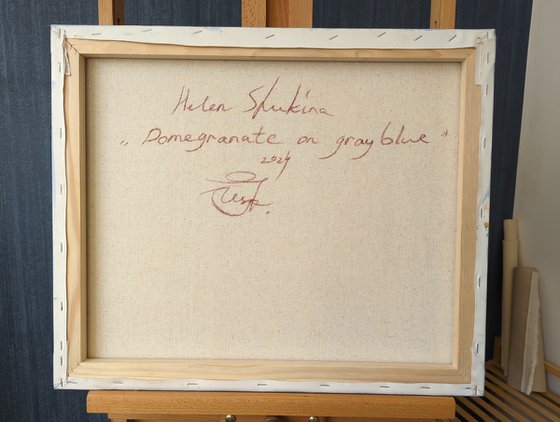 Helen Shukina
"Pomegranate on gray blue"
2024